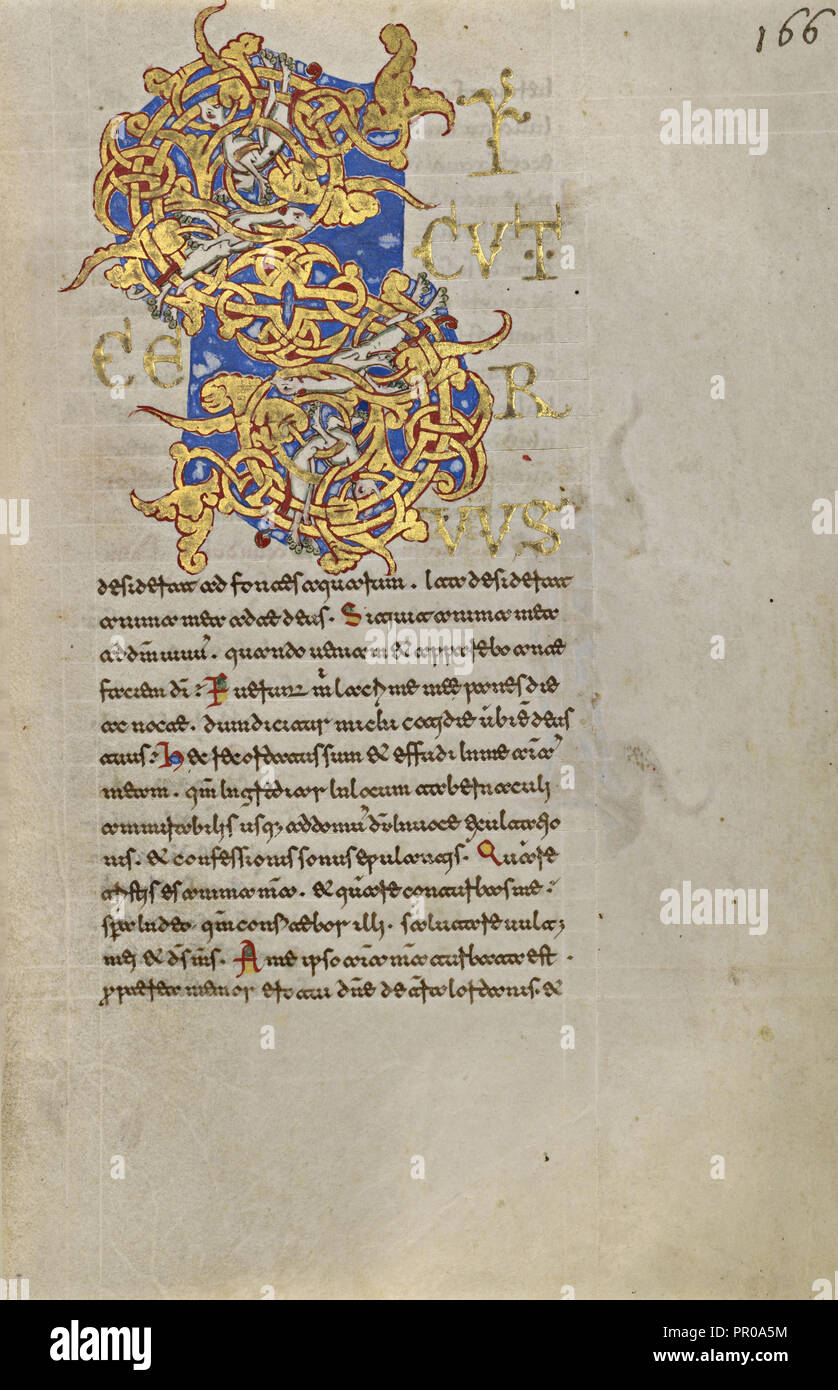 166
S I
CVT
CE R
VVS
desiderat ad fontes aquarum . Ita desiderat
anima mea ad te deus . Sitiuit anima mea
ad dm̄ uiuū . quando ueniam et apparebo ante
faciem dī ? Fuerunt m̄ lacrime mee panes die
ac nocte . dum dicitur michi cotidie ubi ē deus
tuus ? Hec recordatus sum et effudi in me aīam
meam . qm̄ ingrediar in locum tabernaculi
ammirabilis usq; ad domū dī In uoce exultatio
nis . et confessionis sonus epulantis . Quare
tristis es anima mea . et quare conturbas me ?
Spera in deo qm̄ confitebor illi . salutare uult;
mei et ds̄ ms̄ . A me ipso aīa mea turbata est .
propterea memor ero tui dn̄e de tr̄a iordanis . et
a
alamy
alamy
Image ID: PR0A5M
www.alamy.com